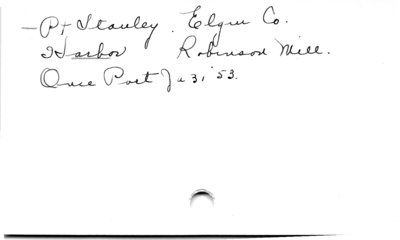 — Pt Stanley. Elgin Co.
Harbor Robinson Mill.
Once Port Ju 31 '53.